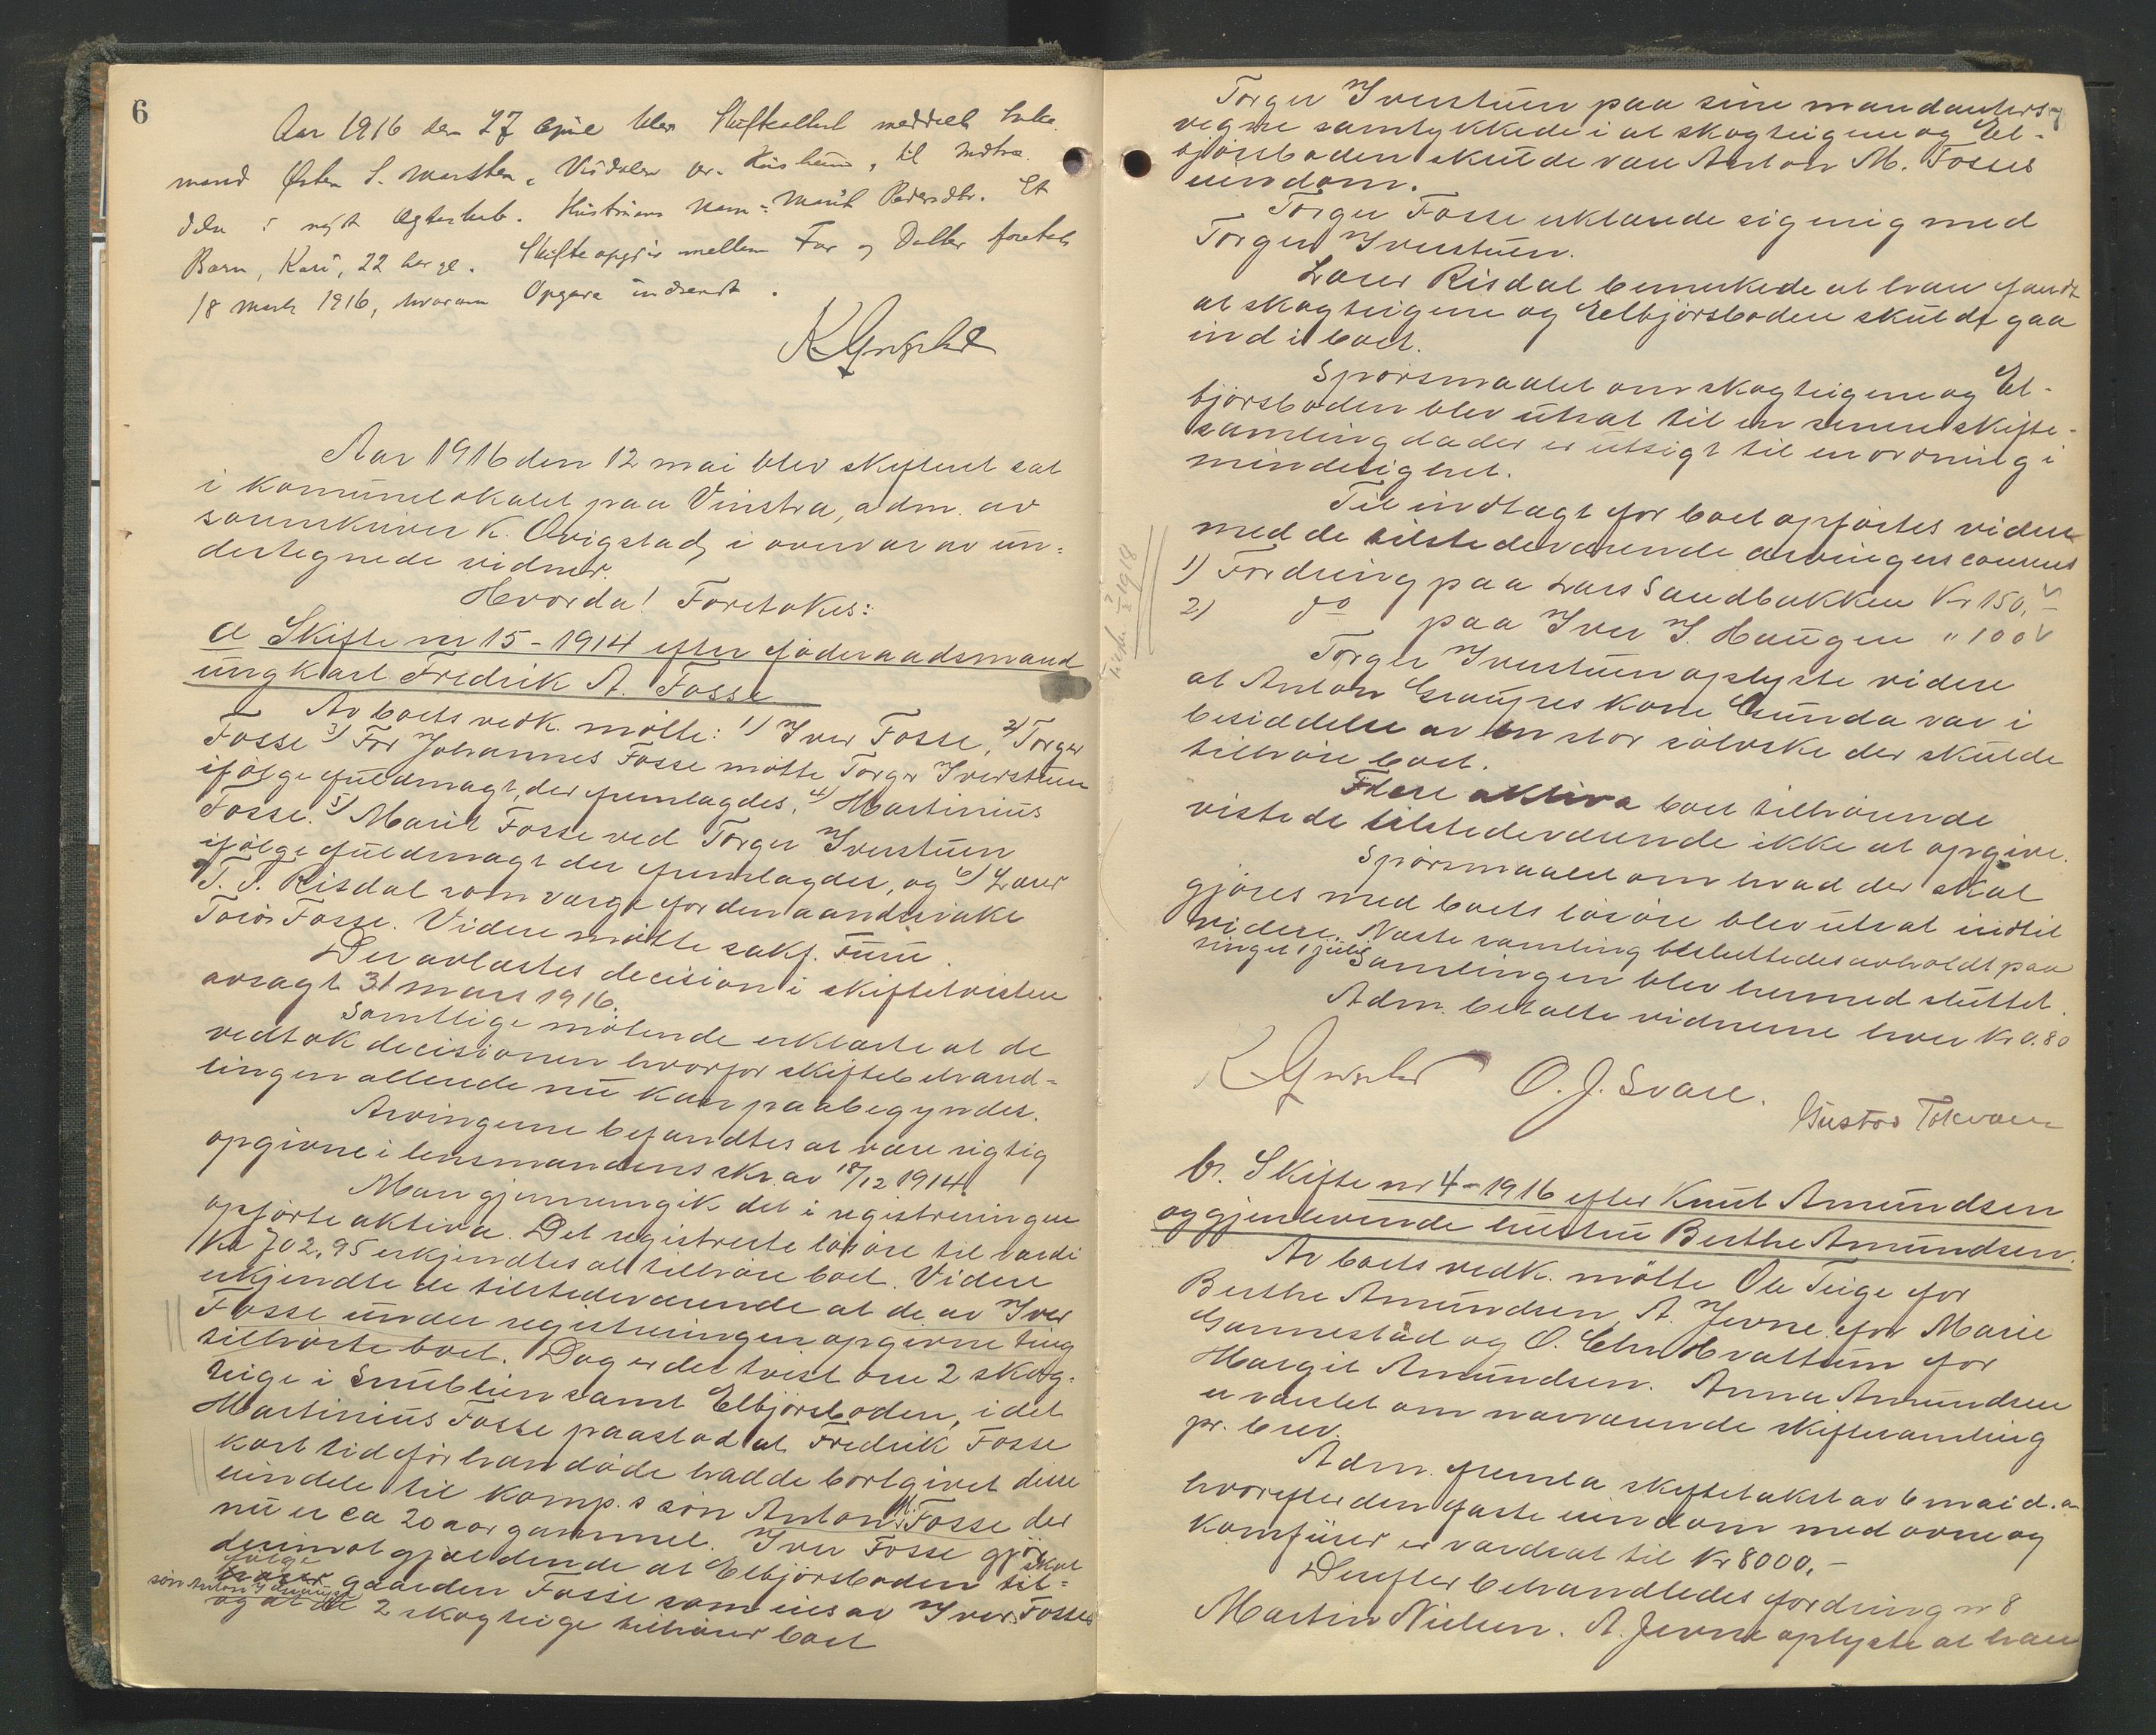 6
Aar 1916 den 27 April blev Skifteattest meddelt Enke-
mand Østen S. , Vis-dalen  , til Indtræ-
den i nyt Ægteskab. Hustruens Navn: Marit Pedersdtr. Et
Barn, Kari, 22 Aar gl. Skifteopgjør mellem Far og Datter foretat
18 Marts 1916, hvorom Opgave indsendt.
Aar 1916 den 12 mai blev skifteret sat
i komunelokalet paa Vinstra, adm. av
sorenskriver K. Qvigstad, i overvær av un-
dertegnede vidner.
Hvorda! Foretokes:
a Skifte nr 15 - 1914 efter föderaadsmand
ungkarl Fredrik A. Fosse
Av boets vedk. mötte: 1) Iver Fosse, 2) Torger
Fosse 3) For Johannes Fosse mötte Torger Iverstuen
ifölge fuldmagt, der fremlagdes, 4) Martinius
Fosse. 5) Marit Fosse ved Torger Iverstuen
ifölge fuldmagt der fremlagdes, og 6) Laurs
T. T. Risdal som verge for den aandssvake
Fosse. Videre mötte sakf. Furu.
Der avlæstes decision i skiftetvisten
avsagt 31 mars 1916.
Samtlige mötende erklærte at de
vedtok decisionen hvorfor skiftebehand-
lingen allerede nu kan paabegyndes.
Arvingerne befandtes at være rigtig
opgivne i lensmandens skr. av 18/12 1914.
Man gjennemgik det i registreringen
opförte aktiva. Det registrerte lösöre til værdi
Kr 702,95 erkjendtes at tilhöre boet. Videre
erkjendte de tilstedeværende at de av Iver
Fosse under registreringen opgivne ting
tilhörte boet. Dog er det tvist om 2 skog-
teige i Snublien samt Elbjörsboden, idet
Martinius Fosse paastod at Fredrik Fosse
kort tid för han döde hadde bortgivet disse
eindele til komp.s sön Anton M. Fosse der
nu er ca 20 aar gammel. Iver Fosse gjör
derimot gjældende at Elbjörsboden skal til-
fölge gaarden Fosse som eies av Iver Fosses
sön Anton I
og at de 2 skogteige tilhörer boet
Torger Iverstuen paa sine mandanters
vegne samtykkede i at skogteigene og El-
björsboden skulde være Anton M. Fosses
eiendom.
Torger Fosse erklærede sig enig med
Torger Iverstuen.
Laurs Risdal bemerkede at han fandt
at skogteigene og Elbjörsboden skulde gaa
ind i boet.
Spörsmaalet om skogteigene og El-
björsboden blev utsat til en senere skifte-
samling da der er utsigt til en ordning i
mindelighet.
Til indtægt for boet opförtes videre
med de tilstedeværende arvingers consens
1) Fordring paa Lars Sandbakken Kr 150,-
2) do paa Iver I. Haugen " 100
1918
Torger Iverstuen oplyste videre
at Anton kone Gunda var i
besiddelse av en stor sölvske der skulde
tilhöre boet.
Flere aktiva boet tilhörende
viste de tilstedeværende ikke at opgive.
Spörsmaalet om hvad der skal
gjöres med boets lösöre blev utsat indtil
videre. Næste samling besluttedes avholdt paa
tinget i juli.
Samlingen blev hermed sluttet.
Adm. betalte vidnerne hver Kr 0.80
O. J. Svare.
Gustav Tokvam
b. Skifte nr 4 - 1916 efter Knut Amundsen
og gjenlevende hustru Berthe Amundsen.
Av boets vedk. mötte Ole Teige for
Berthe Amundsen, A. Jevne for Marie
Gannestad og O. Chr. Hvattum for
Margit Amundsen. Anna Amundsen
er varslet om nærværende skiftesamling
pr. brev.
Adm. fremla skiftetakst av 6 mai d.a.
hvorefter den faste eiendom med ovne og
komfurer er værdsat til Kr 8000,-
Derefter behandledes fordring nr 8
Martin Nielsen. A. Jevne oplyste at han